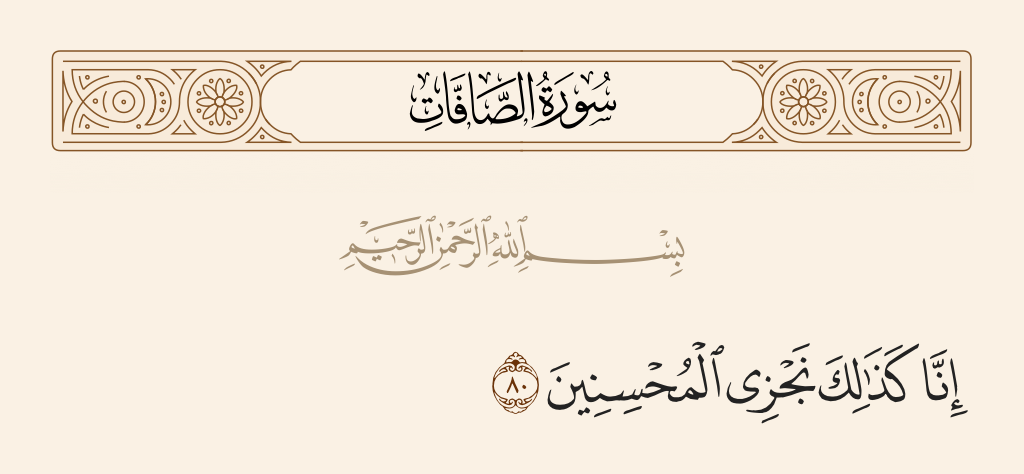 سُورَةُ الصَّافَّاتِ
بِسْمِ ٱللَّهِ ٱلرَّحْمَٰنِ ٱلرَّحِيمِ
إِنَّا كَذَٰلِكَ نَجْزِى ٱلْمُحْسِنِينَ ٨٠